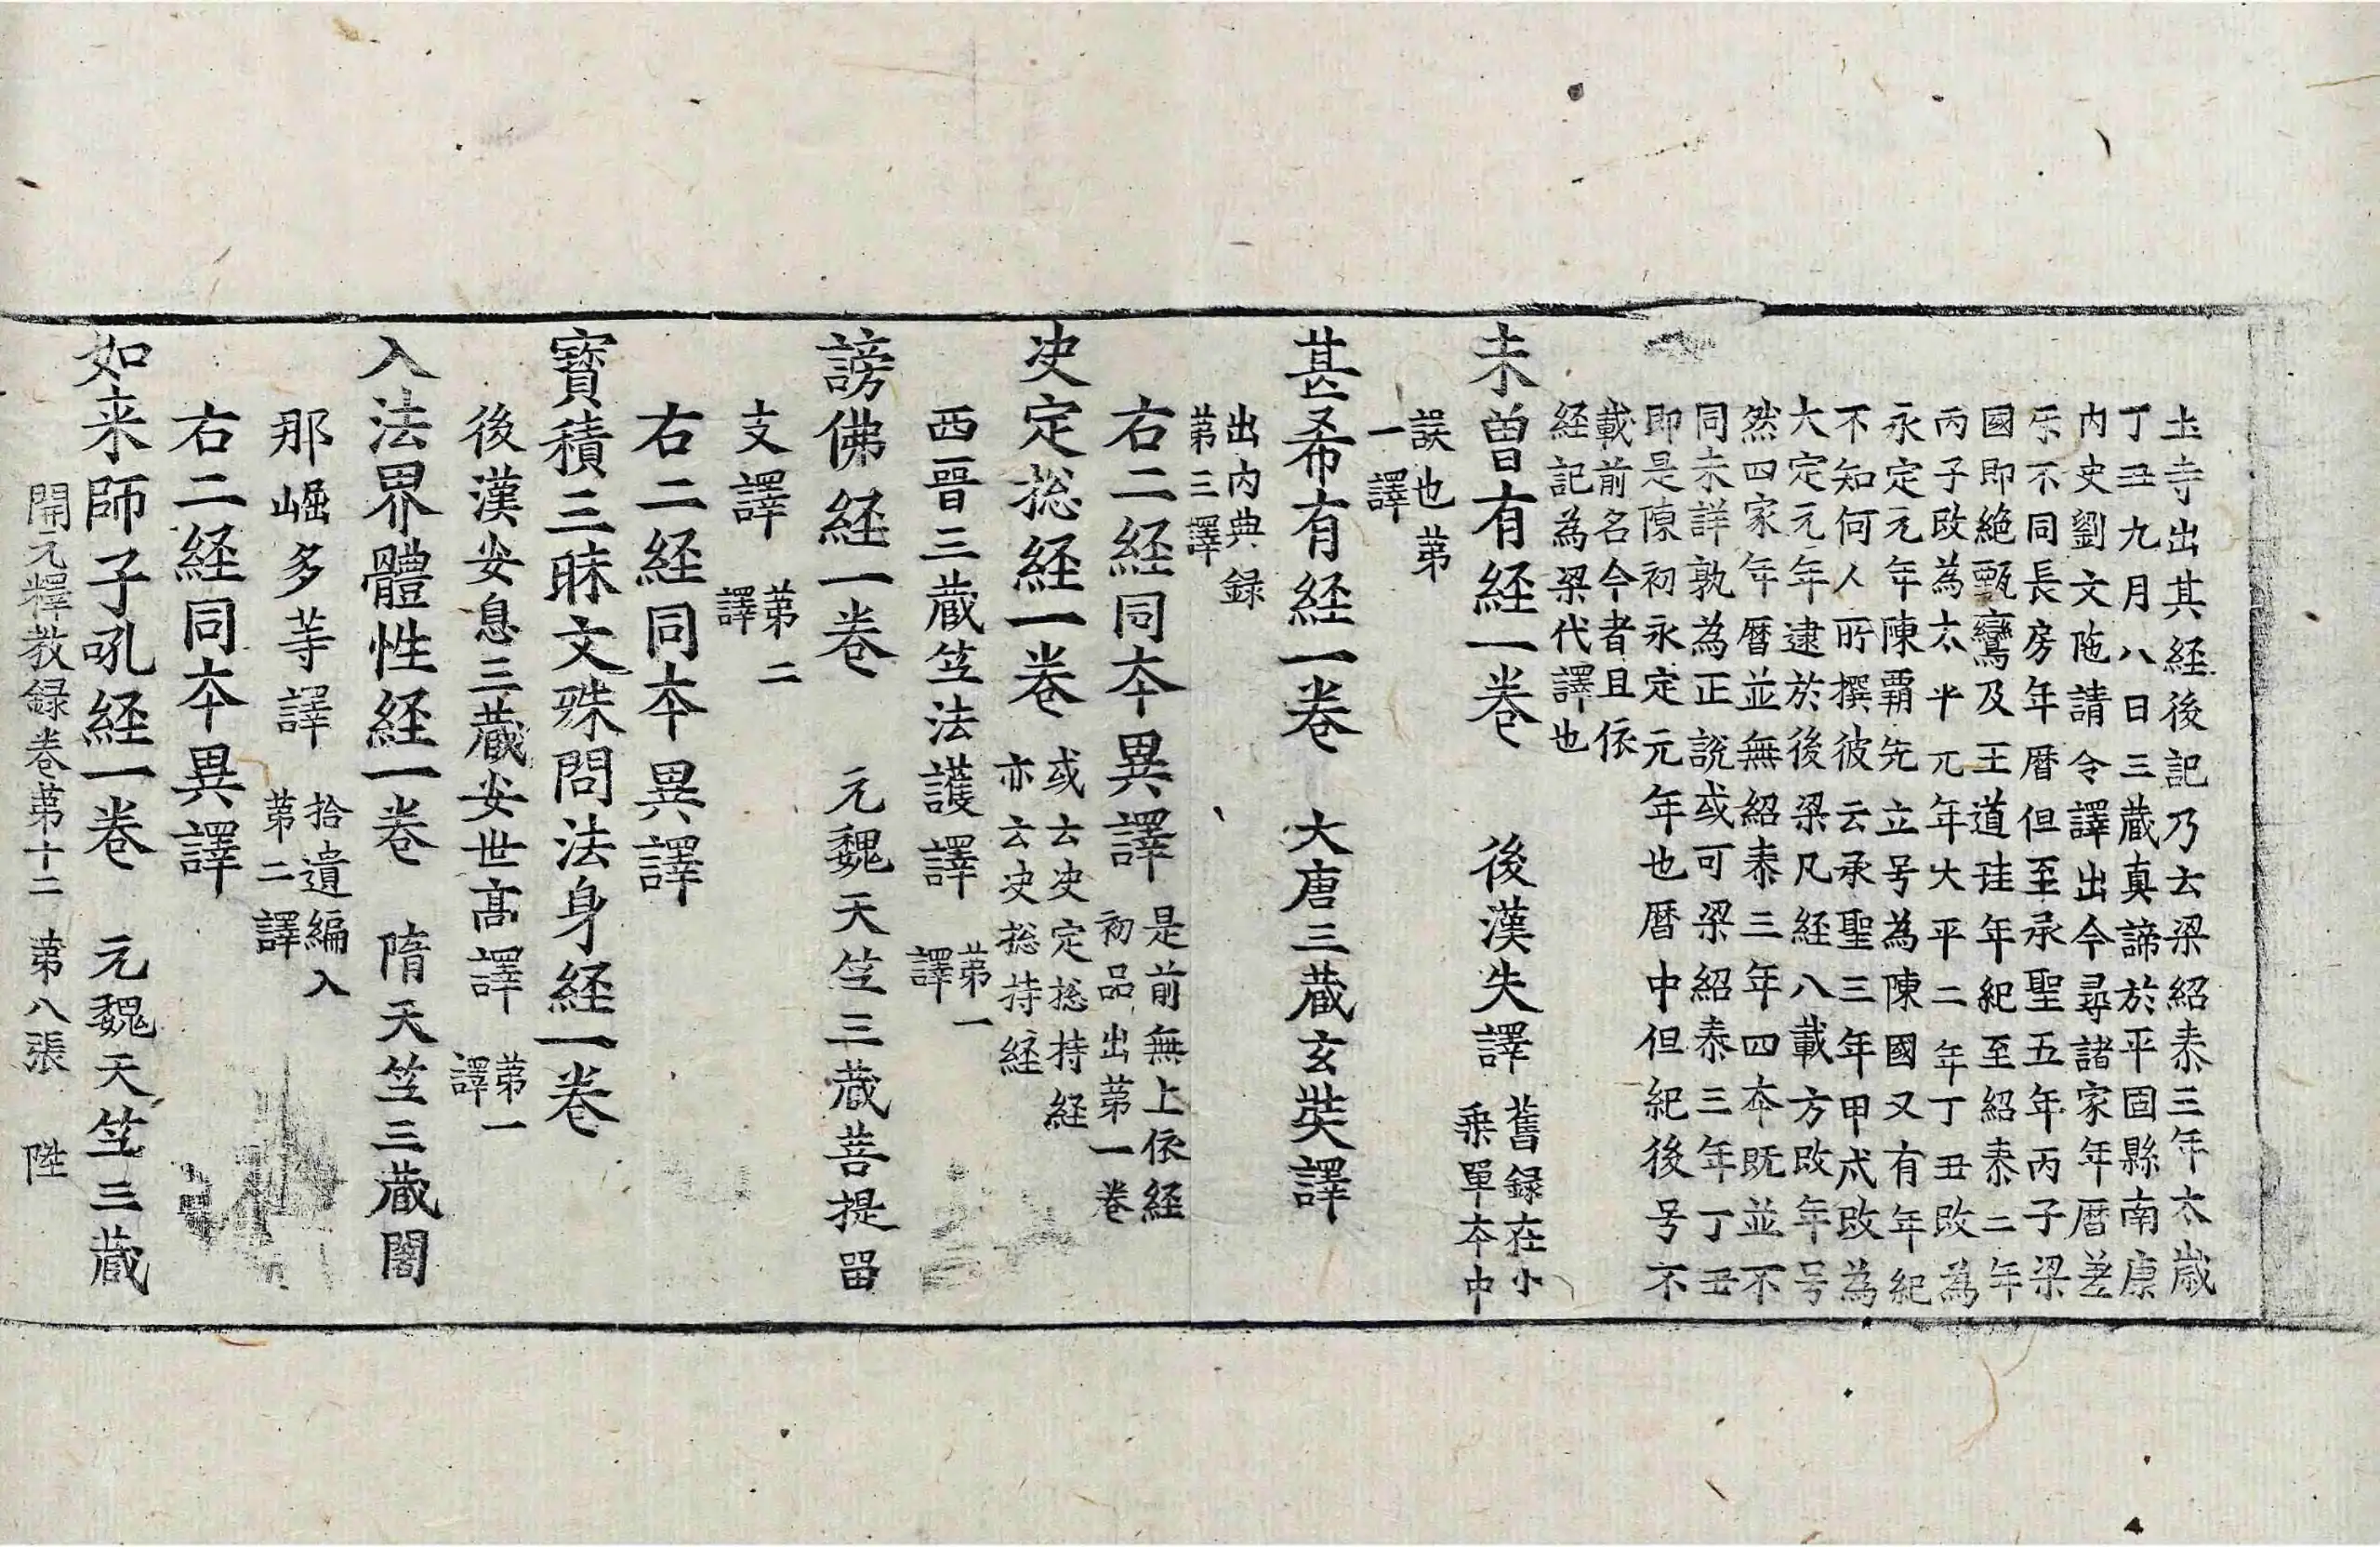 土寺出其経後記乃云梁紹泰三年太歲
丁丑九月八日三蔵真諦於平固縣南康
内史劉文陁請令譯出今尋諸家年暦差
互不同長房年暦但至承聖五年丙子梁
國即絶甄鸞及王道珪年紀至紹泰二年
丙子改為太平元年大平二年丁丑改為
永定元年陳霸先立号為陳國又有年紀
不知何人所撰彼云承聖三年甲戌改為
大定元年逮於後梁凡経八載方改年号
然四家年暦並無紹泰三年四本既並不
同未詳孰為正説或可梁紹泰三年丁丑
即是陳初永定元年也暦中但紀後号不
載前名今者且依
経記為梁代譯也
未曽有経一卷　後漢失譯　舊録在小
乗單本中
誤也第
一譯
甚希有経一卷　大唐三蔵玄奘譯
出内典録
第三譯
右二経同本異譯　是前無上依経
初品出第一卷
決定捴経一卷　或云決定捴持経
亦云決捴持経
西晉三蔵竺法護譯　第一
譯
謗佛経一卷　元魏天竺三蔵菩提留
支譯　第二
譯
右二経同本異譯
寶積三昧文殊問法身経一卷
後漢安息三蔵安世髙譯　第一
譯
入法界體性経一卷　隋天竺三蔵闍
那崛多等譯　拾遺編入
第二譯
右二経同本異譯
如来師子吼経一卷　元魏天竺三蔵
開元釋教録卷第十二　第八張　陞